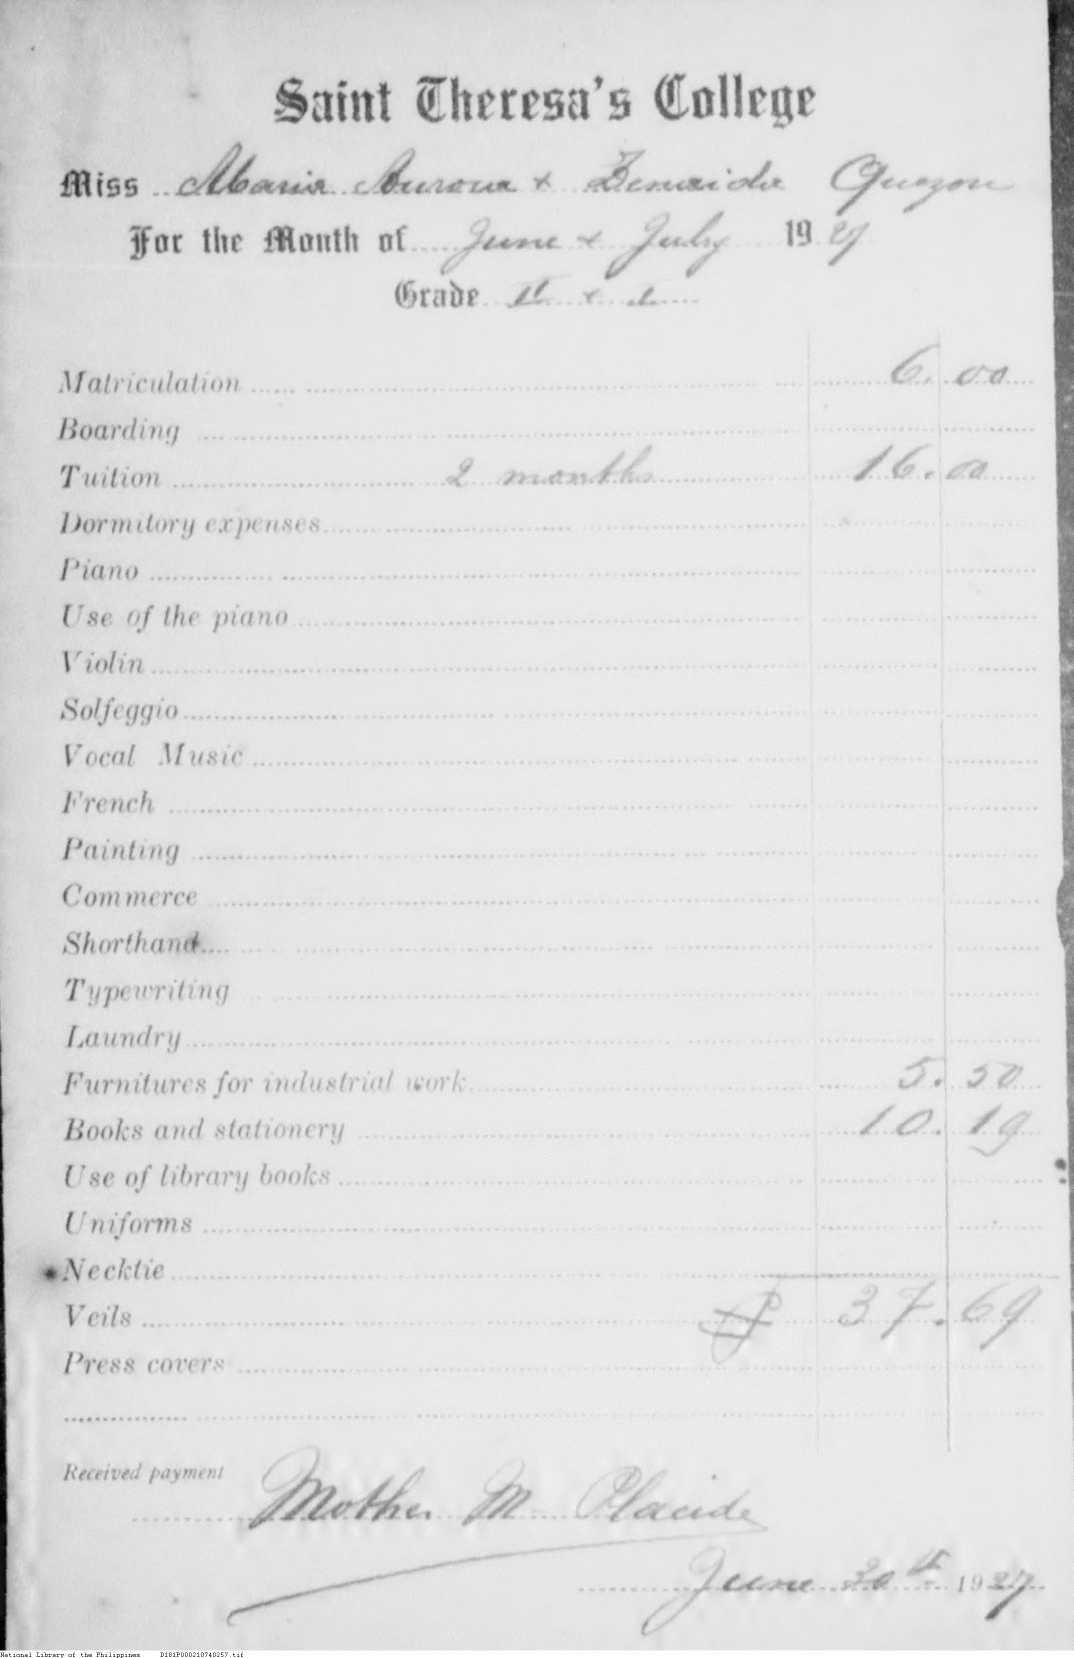 Saint Theresa's College
Miss Maria Aurora + Zenaida Quezon
For the Month of June + July 1927
Grade II + I
Matriculation 6.00
Boarding
Tuition 2 months 16.00
Dormitory expenses
Piano
Use of the piano
Violin
Solfeggio
Vocal Music
French
Painting
Commerce
Shorthand
Typewriting
Laundry
Furnitures for industrial work 5.50
Books and stationery 10.19
Use of library books
Uniforms
Necktie
Veils ₱ 37.69
Press covers
Received payment
Mother M Placide
June 30th 1927
National Library of the Philippines D181P000210740257.tif